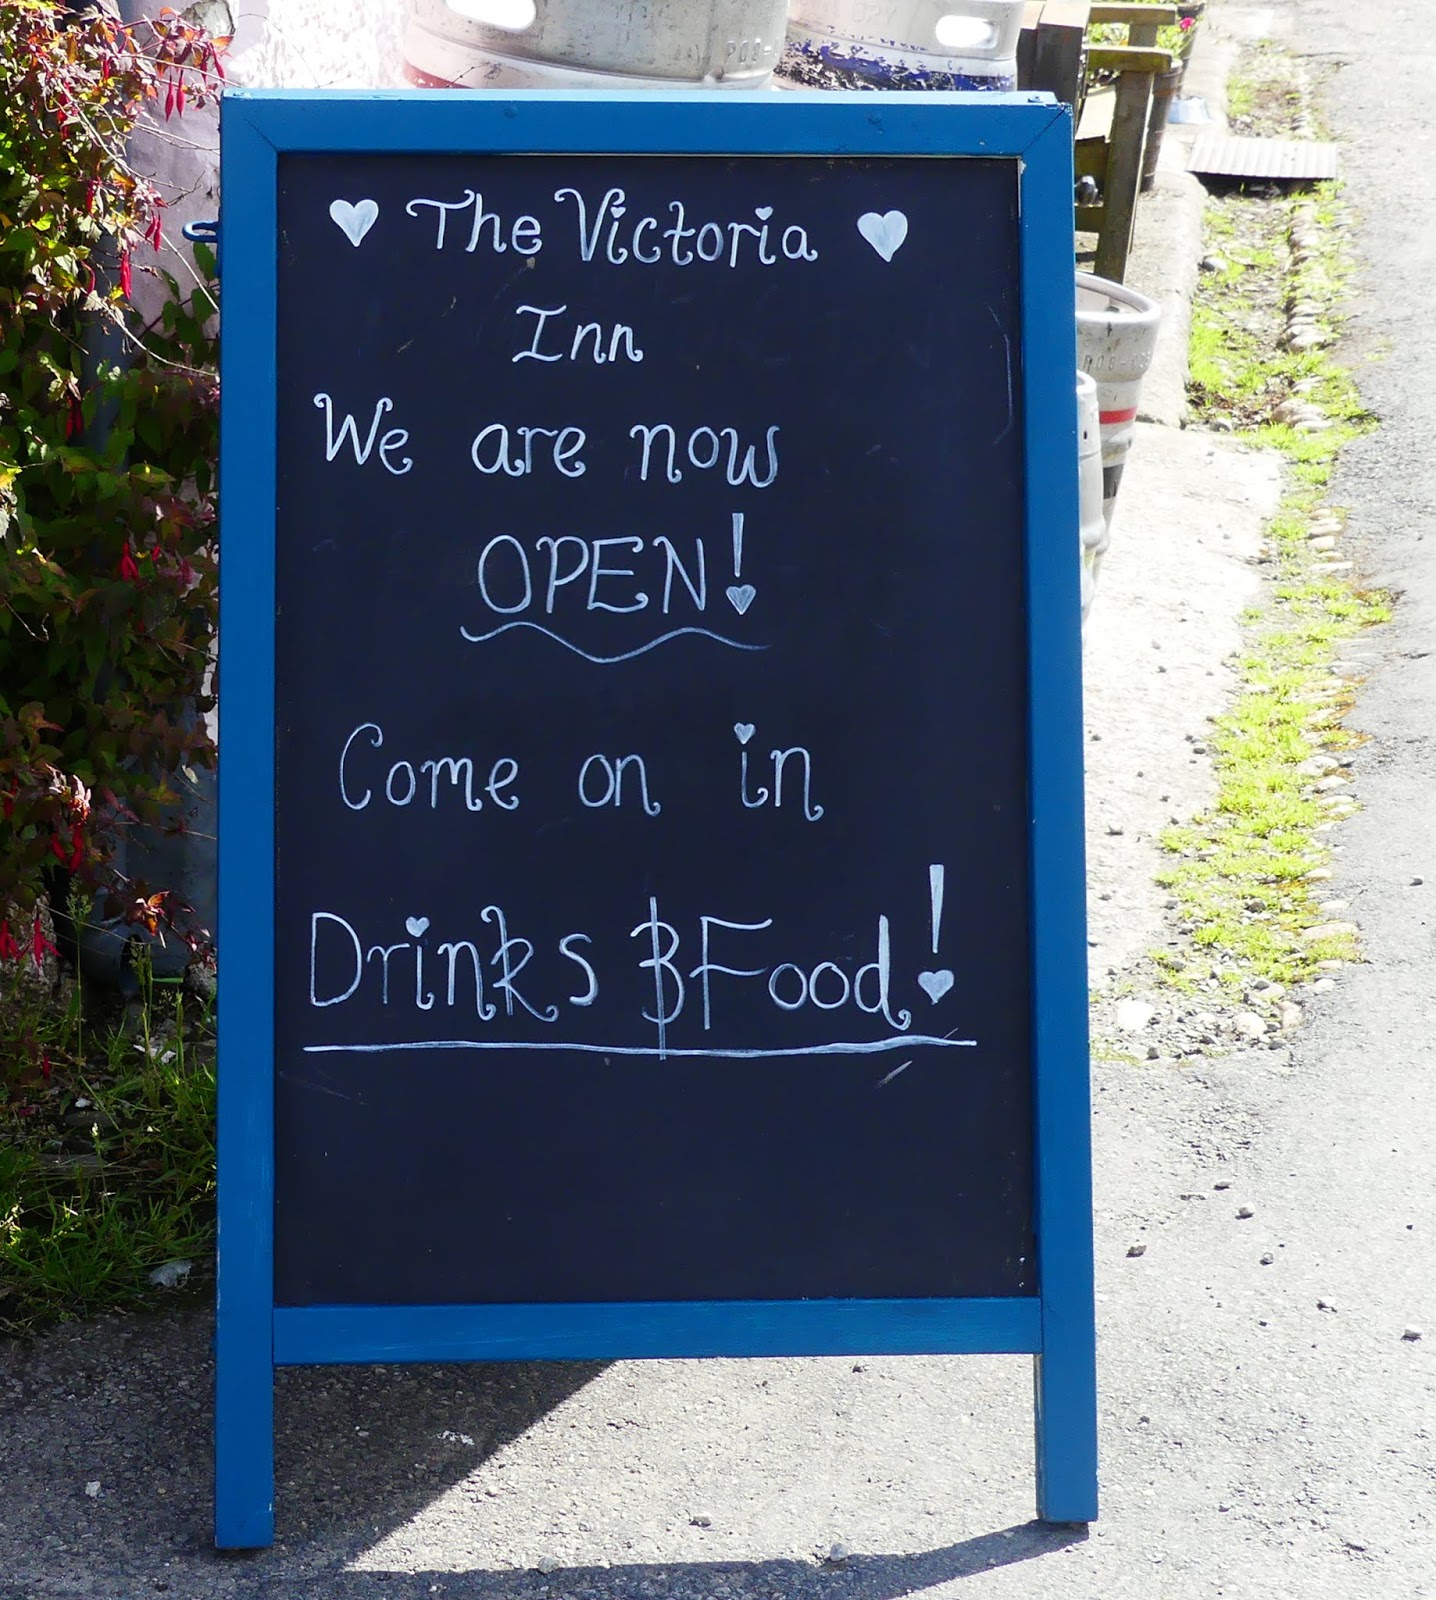 ♥ The Victoria ♥
Inn
We are now
OPEN!
Come on in
Drinks & Food!